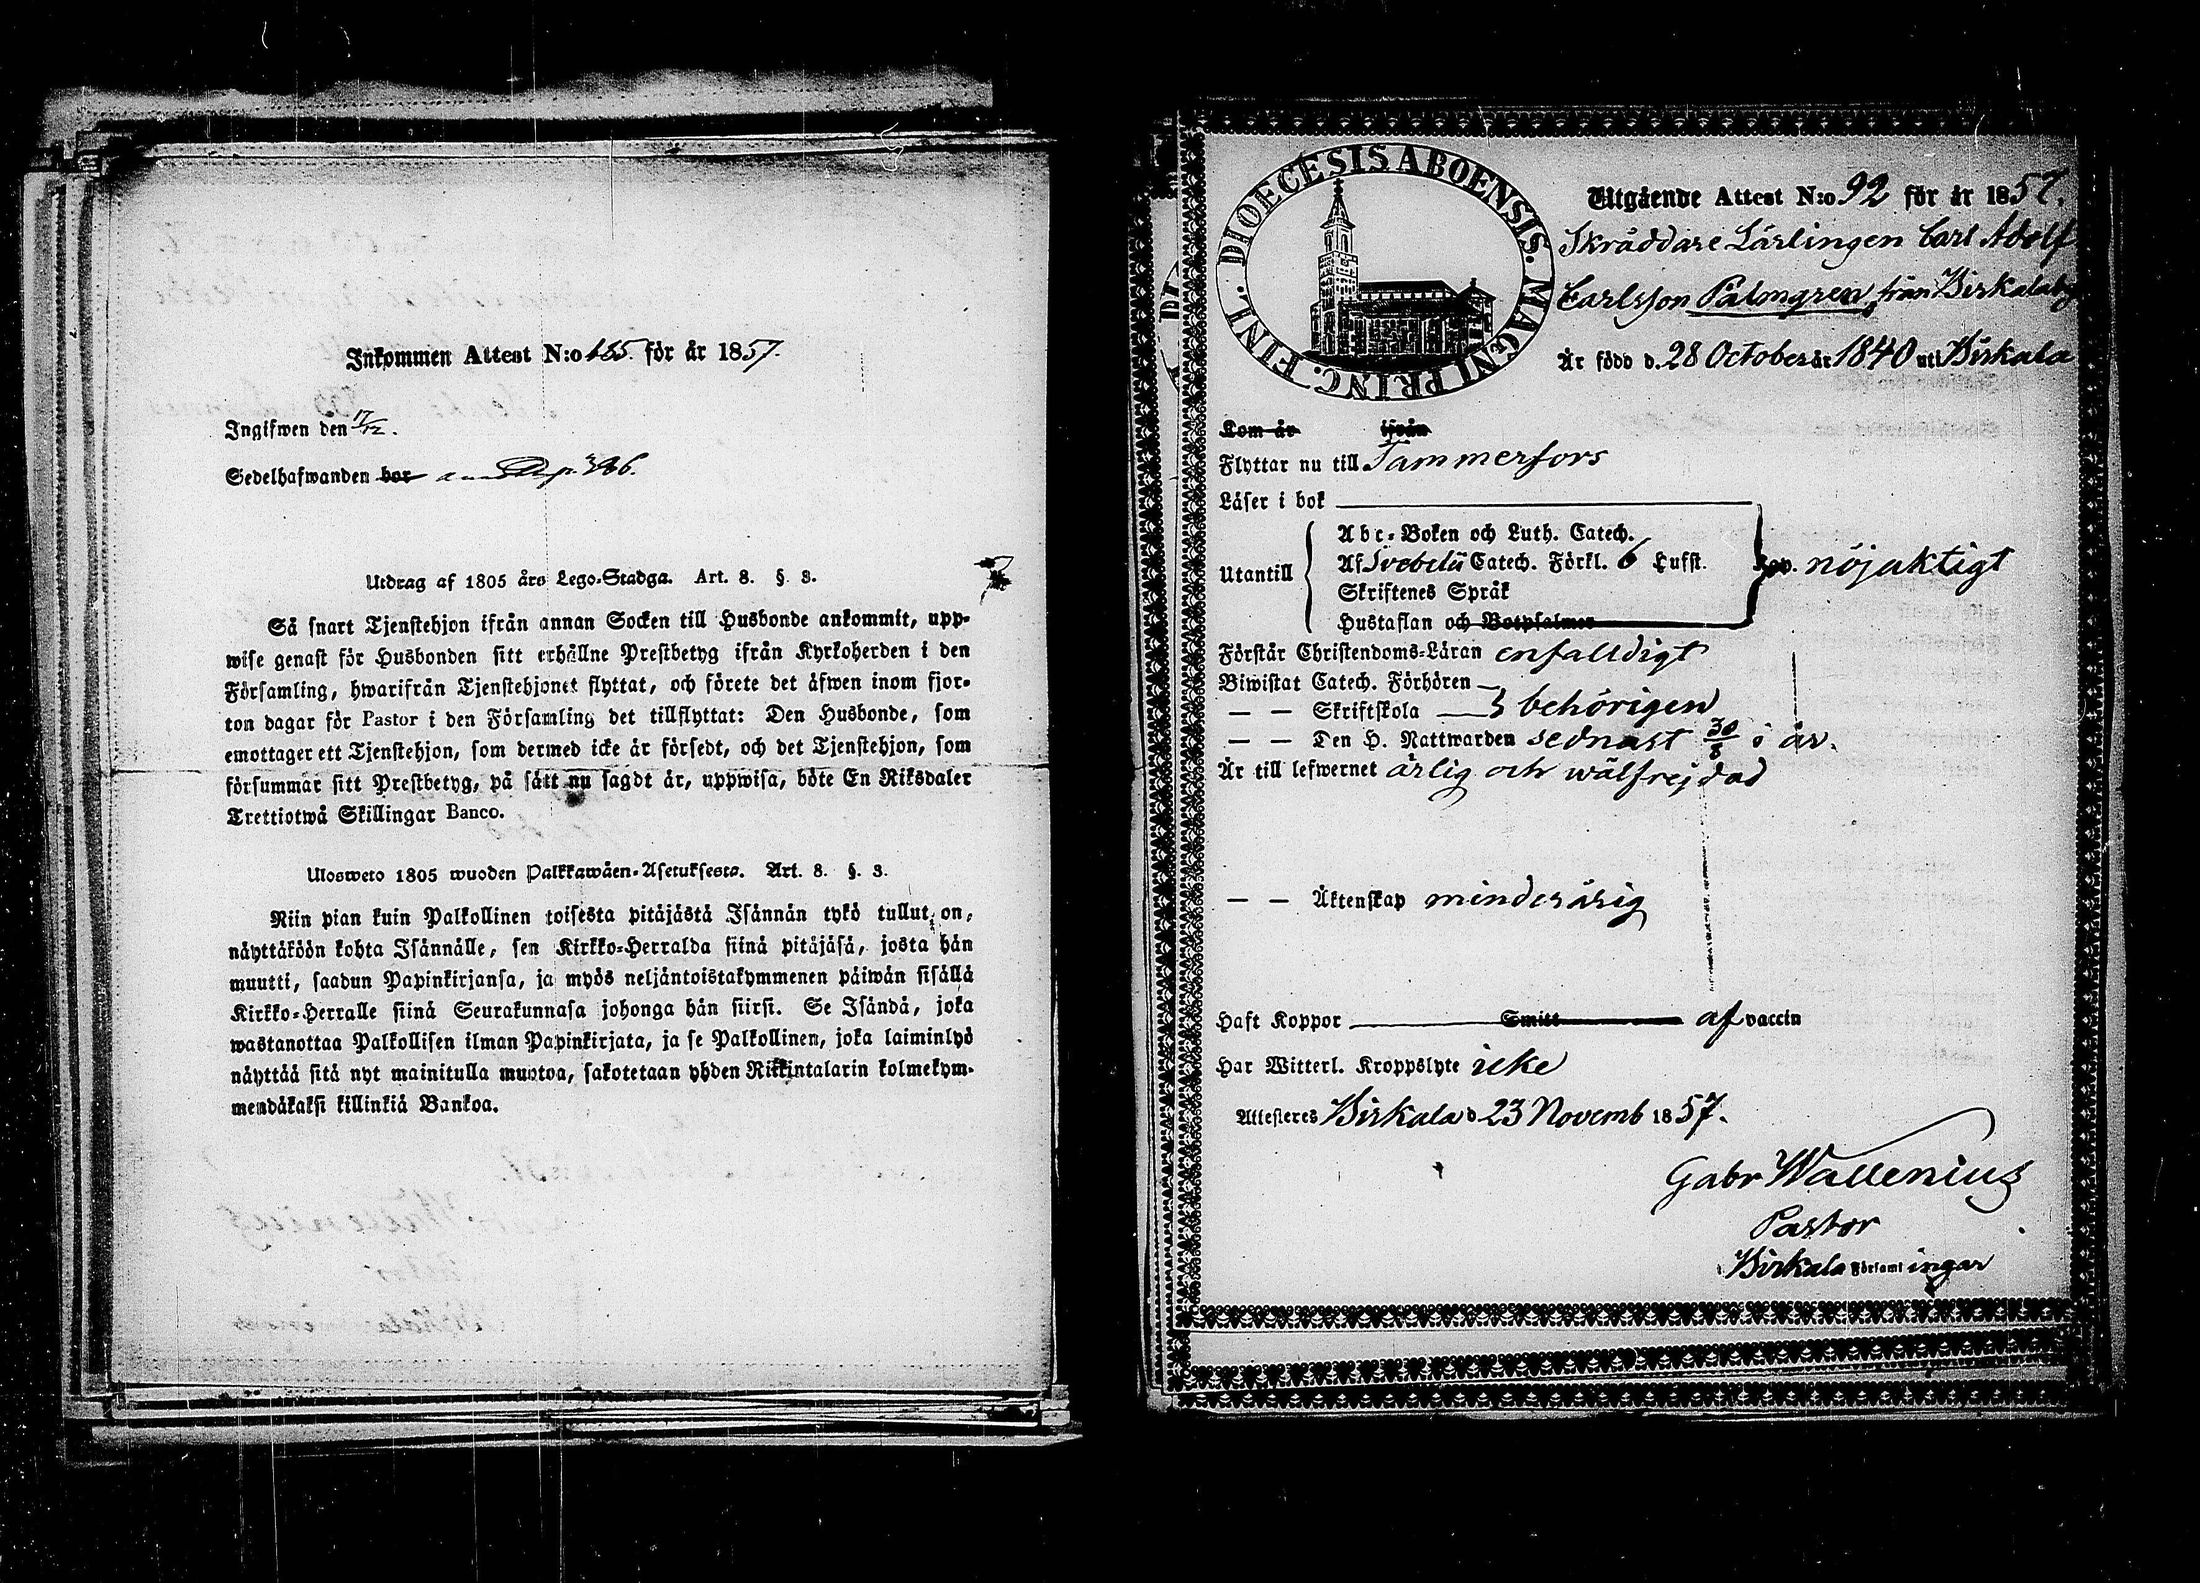 Inkommen Attest N:o 155. för år 1857.
Ingifwen den 17/12.
Sedelhafwanden bor
Utdrag af 1805 års Lego-Stadga. Art. 8. §. 3.
Så snart Tjenstehjon ifrån annan Socken till Husbonde ankommit, upp-
wise genast för Husbonden sitt erhållne Prestbetyg ifrån Kyrkoherden i den
Församling, hwarifrån Tjenstehjonet flyttat, och förete det äfwen inom fjor-
ton dagar för Pastor i den Församling det tillflyttat: Den Husbonde, som
emottager ett Tjenstehjon, som dermed icke är försedt, och det Tjenstehjon, som
försummar sitt Prestbetyg, på sätt nu sagdt är, uppwisa, böte En Riksdaler
Trettiotwå Skillingar Banco.
Ulosweto 1805 wuoden Palkkawäen-Asetuksesta. Art. 8. §. 3.
Niin pian kuin Palkollinen toisesta pitäjästä Isännän tykö tullut on,
näyttäköön kohta Isännälle, sen Kirkko-Herralda siinä pitäjäsä, josta hän
muutti, saadun Papinkirjansa, ja myös neljäntoistakymmenen päiwän sisällä
Kirkko-Herralle siinä Seurakunnasa johonga hän siirsi. Se Isändä, joka
wastanottaa Palkollisen ilman Papinkirjata, ja se Palkollinen, joka laiminlyö
näyttää sitä nyt mainitulla muotoa, sakotetaan yhden Riikintalarin kolmekym-
mendäkaksi killinkiä Bankoa.
DIOECESIS ABOENSIS. MAGNI PRINC. FINL.
Utgående Attest N:o 92 för år 1857.
Skräddare Lärlingen Carl Adolf
Carlsson Palmgren, från Birkalaby
Är född d. 28 October år 1840 uti Birkala
Kom år ifrån
Flyttar nu till Tammerfors
Läser i bok
Utantill
Abc-Boken och Luth. Catech.
Af Svebelii Catech. Förkl. 6 Hufst.
Skriftenes Språk
Hustaflan och Botpsalmer
nöjaktigt
Förstår Christendoms-Läran enfalldigt
Biwistat Catech. Förhören
— — Skriftskola behörigen
— — Den H. Nattwarden sednast 30/8 i år.
Är till lefwernet ärlig och wälfrejdad
— — Äktenskap minderårig
Haft Koppor Smitt af vaccin
Har Witterl. Kroppslyte icke
Attesteres Birkala d 23 Novemb 1857.
Gabr Wallenius
Pastor
Birkala Församlingar